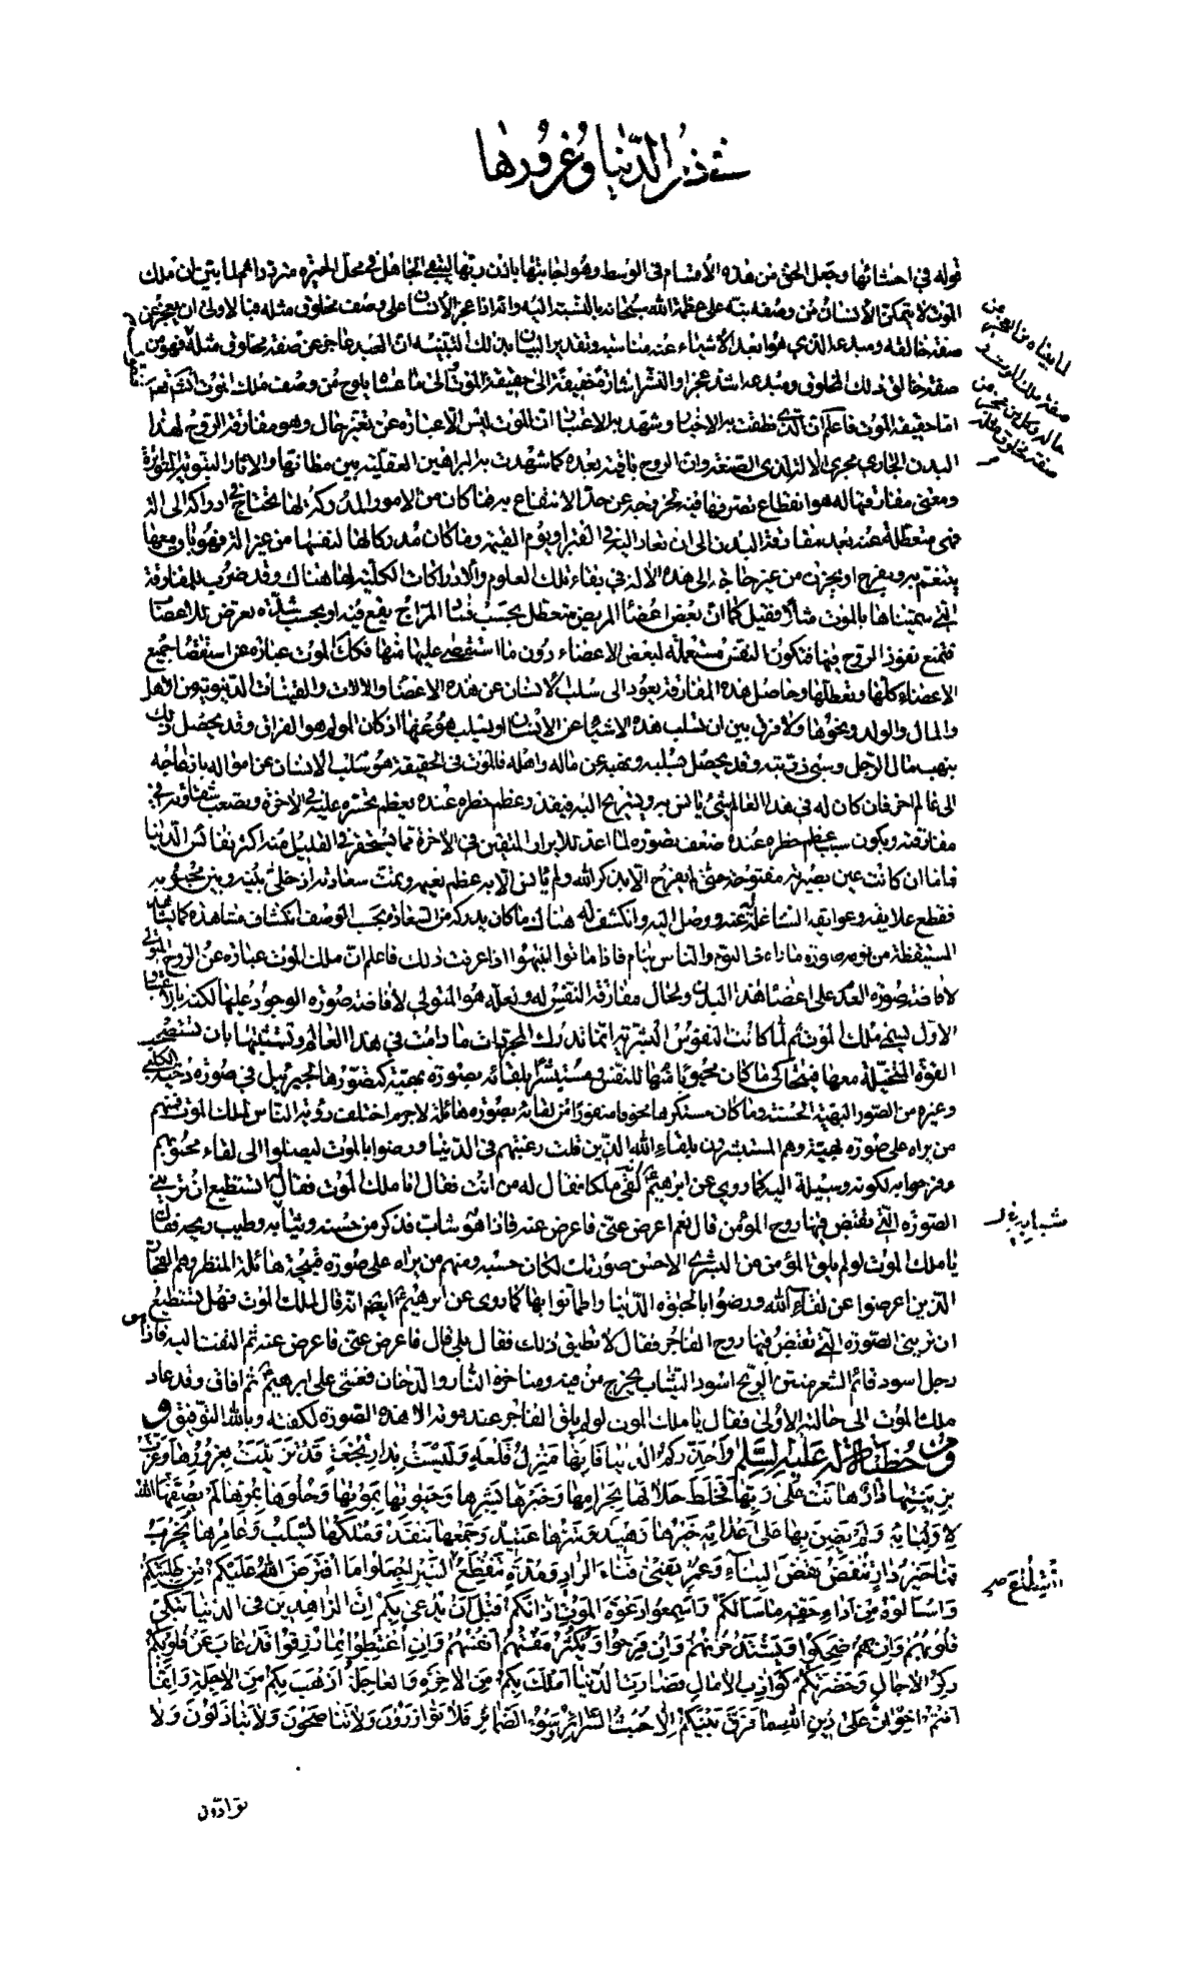 في ذم الدنيا وغرورها
قوله في احشائها وجعل الحق من هذه الأقسام في الوسط وهو اجابتها باذن ربها لينفى الجاهل في محل الحيرة مترددا ثم لما بين ان ملك
الموت لا يتمكن الأنسان من وصفه نبه على عظمة الله سبحانه بالنسبة اليه وانه اذا عجز الأنسان على وصف مخلوق مثله فبالاولى ان يعجز عن
صفة خالقه ومبدعه الذي هو ابعد الأشياء عنه مناسبة وتقدير البيان بذلك التنبيه ان العبد عاجز عن صفة مخلوق مثله فهو عن
صفة خالق ذلك المخلوق ومبدعه اشد عجزا ولنشر اشارة خفيفة الى حقيقة الموت والى ما عساه يلوح من وصف ملك الموت انشم
اما حقيقة الموت فاعلم ان الذي نطقت به الاخبار وشهد به الاعتبار ان الموت ليس الا عبارة عن تغير حال وهو مفارقة الروح لهذا
البدن الجاري مجرى الالة لذي الصنعة وان الروح باقية بعده كما شهدت به البراهين العقلية بين مظانها والاثار النبوية المتواترة
ومعنى مفارقتها له هو انقطاع تصرفها فيه لخروجه عن حد الانتفاع به فما كان من الامور المدركة لها تحتاج في ادراكه الى الة
فهي متعطلة عنه بعد مفارقة البدن الى ان تعاد اليه في القبر او يوم القيمة وما كان مدركا لها لنفسها من غير الة فهو باق معها
يتنعم به ويفرح او يحزن من غير حاجة الى هذه الالة في بقاء تلك العلوم والادراكات الكلية لها هناك وقد ضرب للمفارقة
التي سميناها بالموت مثلا فقيل كما ان بعض اعضاء المريض متعطل بحسب فساد المزاج يقع فيه او بحسب شدة تعرض للاعصاب
فتمنع نفوذ الروح فيها فتكون النفس مستعملة لبعض الاعضاء دون ما استعصى عليها منها فكذلك الموت عبارة عن استعصاء جميع
الاعضاء كلها وتعطلها وحاصل هذه المفارقة يعود الى سلب الانسان عن هذه الاعضاء والالات والقينات الدنيوية من الاهل
والمال والولد ونحوها ولا فرق بين ان تسلب هذه الاشياء عن الانسان او يسلب هو عنها اذ كان المولم هو الفراق وقد يحصل ذلك
بنهب مال الرجل وسبي ذريته وقد يحصل بسلبه ونفيه عن ماله واهله فالموت في الحقيقة هو سلب الانسان عن امواله بازعاجه
الى عالم اخر فان كان له في هذا العالم شئ يانس به ويستريح اليه فبقدر عظم خطره عنده يعظم تحسره عليه في الاخرة ويصعب شقاوته في
مفارقته ويكون سبب عظم خطره عنده ضعف تصوره لما اعد للابرار المتقين في الاخرة مما يستحقر في القليل منه اكثر نفائس الدنيا
فاما ان كانت عين بصيرته مفتوحة حتى لم يفرح الا بذكر الله ولم يانس الا به عظم نعيمه وتمت سعادته اذ خلى بينه وبين محبوبه
فقطع علايقه وعوائقه الشاغلة عنه ووصل اليه وانكشف له هناك ما كان يدركه من السعادة بحسب الوصف انكشاف مشاهدة كما يشاهد
المستيقظ من نومه صورة ما راه في النوم والناس نيام فاذا ماتوا انتبهوا اذا عرفت ذلك فاعلم ان ملك الموت عبارة عن الروح المتولي
لافاضة صورة العدم على اعضاء هذا البدن ولحال مفارقة النفس له ولعله هو المتولي لافاضة صورة الوجود عليها لكنه بالاعتبار
الاول ليسمى ملك الموت ثم لما كانت النفوس البشرية انما تدرك المجردات ما دامت في هذا العالم وتشبثها بان تستصحب
القوة المتخيلة معها فتحاكي ما كان محبوبا منها للنفس ومستبشرا بلقائه بصورة بهية كتصورها لجبرئيل في صورة دحية الكلبي
وغيره من الصور البهية الحسنة وما كان مستكرها مخوفا منفورا من لقائه بصورة هائلة لا جرم اختلف رؤية الناس لملك الموت فمنهم
من يراه على صورة بهية وهم المستبشرون بلقاء الله الذين قلت رغبتهم في الدنيا ورضوا بالموت ليصلوا الى لقاء محبوبهم
وفرحوا به لكونه وسيلة اليه كما روي عن ابرهيم ع لقى ملكا فقال له من انت فقال انا ملك الموت فقال استطيع ان تريني
الصورة التي تقبض فيها روح المؤمن قال نعم اعرض عني فاعرض عنه فاذا هو شاب فذكر من حسنه وثيابه وطيب ريحه فقال
يا ملك الموت لو لم يلق المؤمن من البشرى الا حسن صورتك لكان حسبه ومنهم من يراه على صورة قبيحة هائلة المنظر وهم الفجار
الذين اعرضوا عن لقاء الله ورضوا بالحيوة الدنيا واطمأنوا بها كما روى عن ابرهيم ع ايضا انه قال لملك الموت فهل تستطيع
ان تريني الصورة التي تقبض فيها روح الفاجر فقال لا تطيق ذلك فقال بلى قال فاعرض عني فاعرض عنه ثم التفت اليه فاذا هو
رجل اسود قائم الشعر منتن الريح اسود الثياب يخرج من فيه ومناخره النار والدخان فغشي على ابرهيم ثم افاق وقد عاد
ملك الموت الى حالته الاولى فقال يا ملك الموت لو لم يلق الفاجر عند موته الا هذه الصورة لكفته وبالله التوفيق
ومن خطبة له عليه السلم واحذركم الدنيا فانها منزل قلعة وليست بدار نجعة قد تزينت بغرورها وغرت
بزينتها دارها هانت على ربها فخلط حلالها بحرامها وخيرها بشرها وحيوتها بموتها وحلوها بمرها لم يصفها الله
لاوليائه ولم يضن بها على اعدائه خيرها زهيد وشرها عتيد وجمعها ينفد وملكها يسلب وعامرها يخرب
فما خير دار تنقض نقض البناء وعمر يفنى فناء الزاد ومدة تنقطع انقطاع السير اجعلوا ما افترض الله عليكم من طلبتكم
واسألوه من اداء حقه ما سألكم واسمعوا دعوة الموت اذانكم قبل ان يدعى بكم ان الزاهدين في الدنيا تبكي
قلوبهم وان ضحكوا ويشتد حزنهم وان فرحوا ويكثر مقتهم انفسهم وان اغتبطوا بما رزقوا قد غاب عن قلوبكم
ذكر الاجال وحضرتكم كواذب الامال فصارت الدنيا املك بكم من الاخرة والعاجلة اذهب بكم من الاجلة وانما
انتم اخوان على دين الله ما فرق بينكم الا خبث السرائر وسوء الضمائر فلا توازرون ولا تناصحون ولا تباذلون ولا
توادون